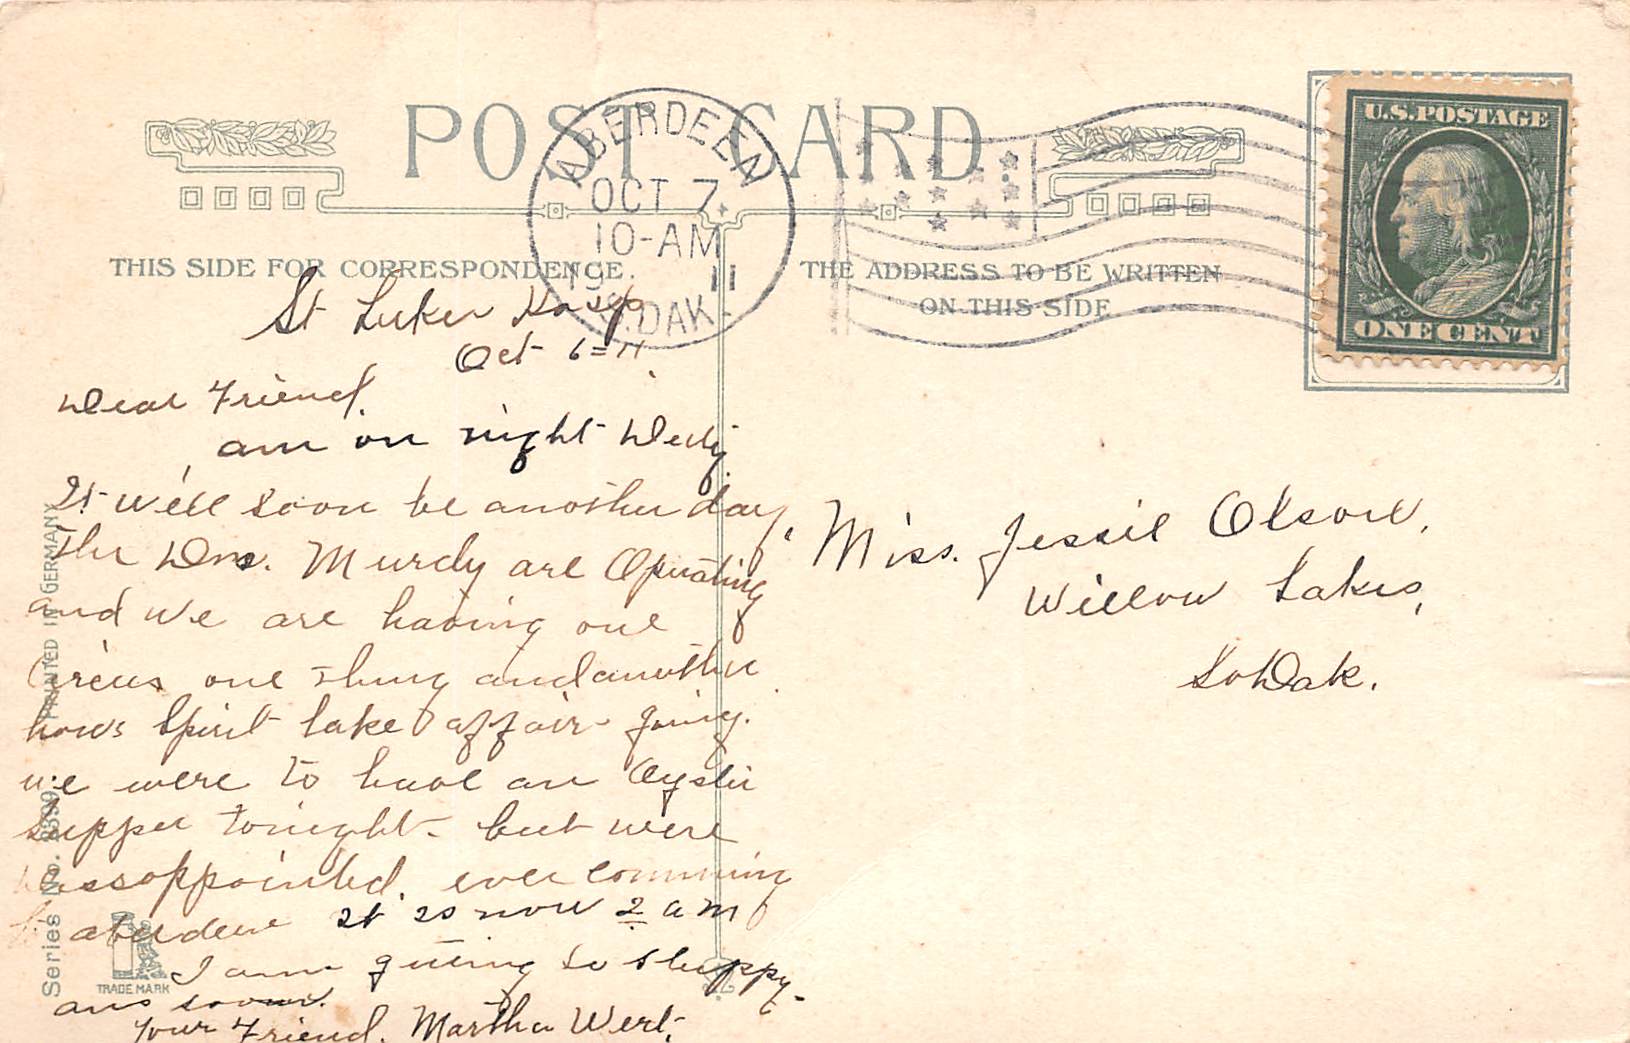 POST CARD
ABERDEEN
OCT 7
10-AM
19 11
S.DAK.
U.S. POSTAGE
ONE CENT
THIS SIDE FOR CORRESPONDENCE.
THE ADDRESS TO BE WRITTEN
ON THIS SIDE
St Lukes Hosp
Oct 6=11.
Dear Friend.
am on night Duty.
It will soon be another day
The Drs. Murdy are Operating
and we are having one
Circus one thing and another
hows Spirit Lake affair going.
we were to have an Oyster
Supper tonight- but were
dissoppointed. ever comming
to aberdeen it is now 2 am
I am getting so sleppy-
ans soon.
Your Friend. Martha Wert.
Miss. Jessie Olson,
Willow Lakes,
So Dak.
PRINTED IN GERMANY
Series No. 2399
TRADE MARK